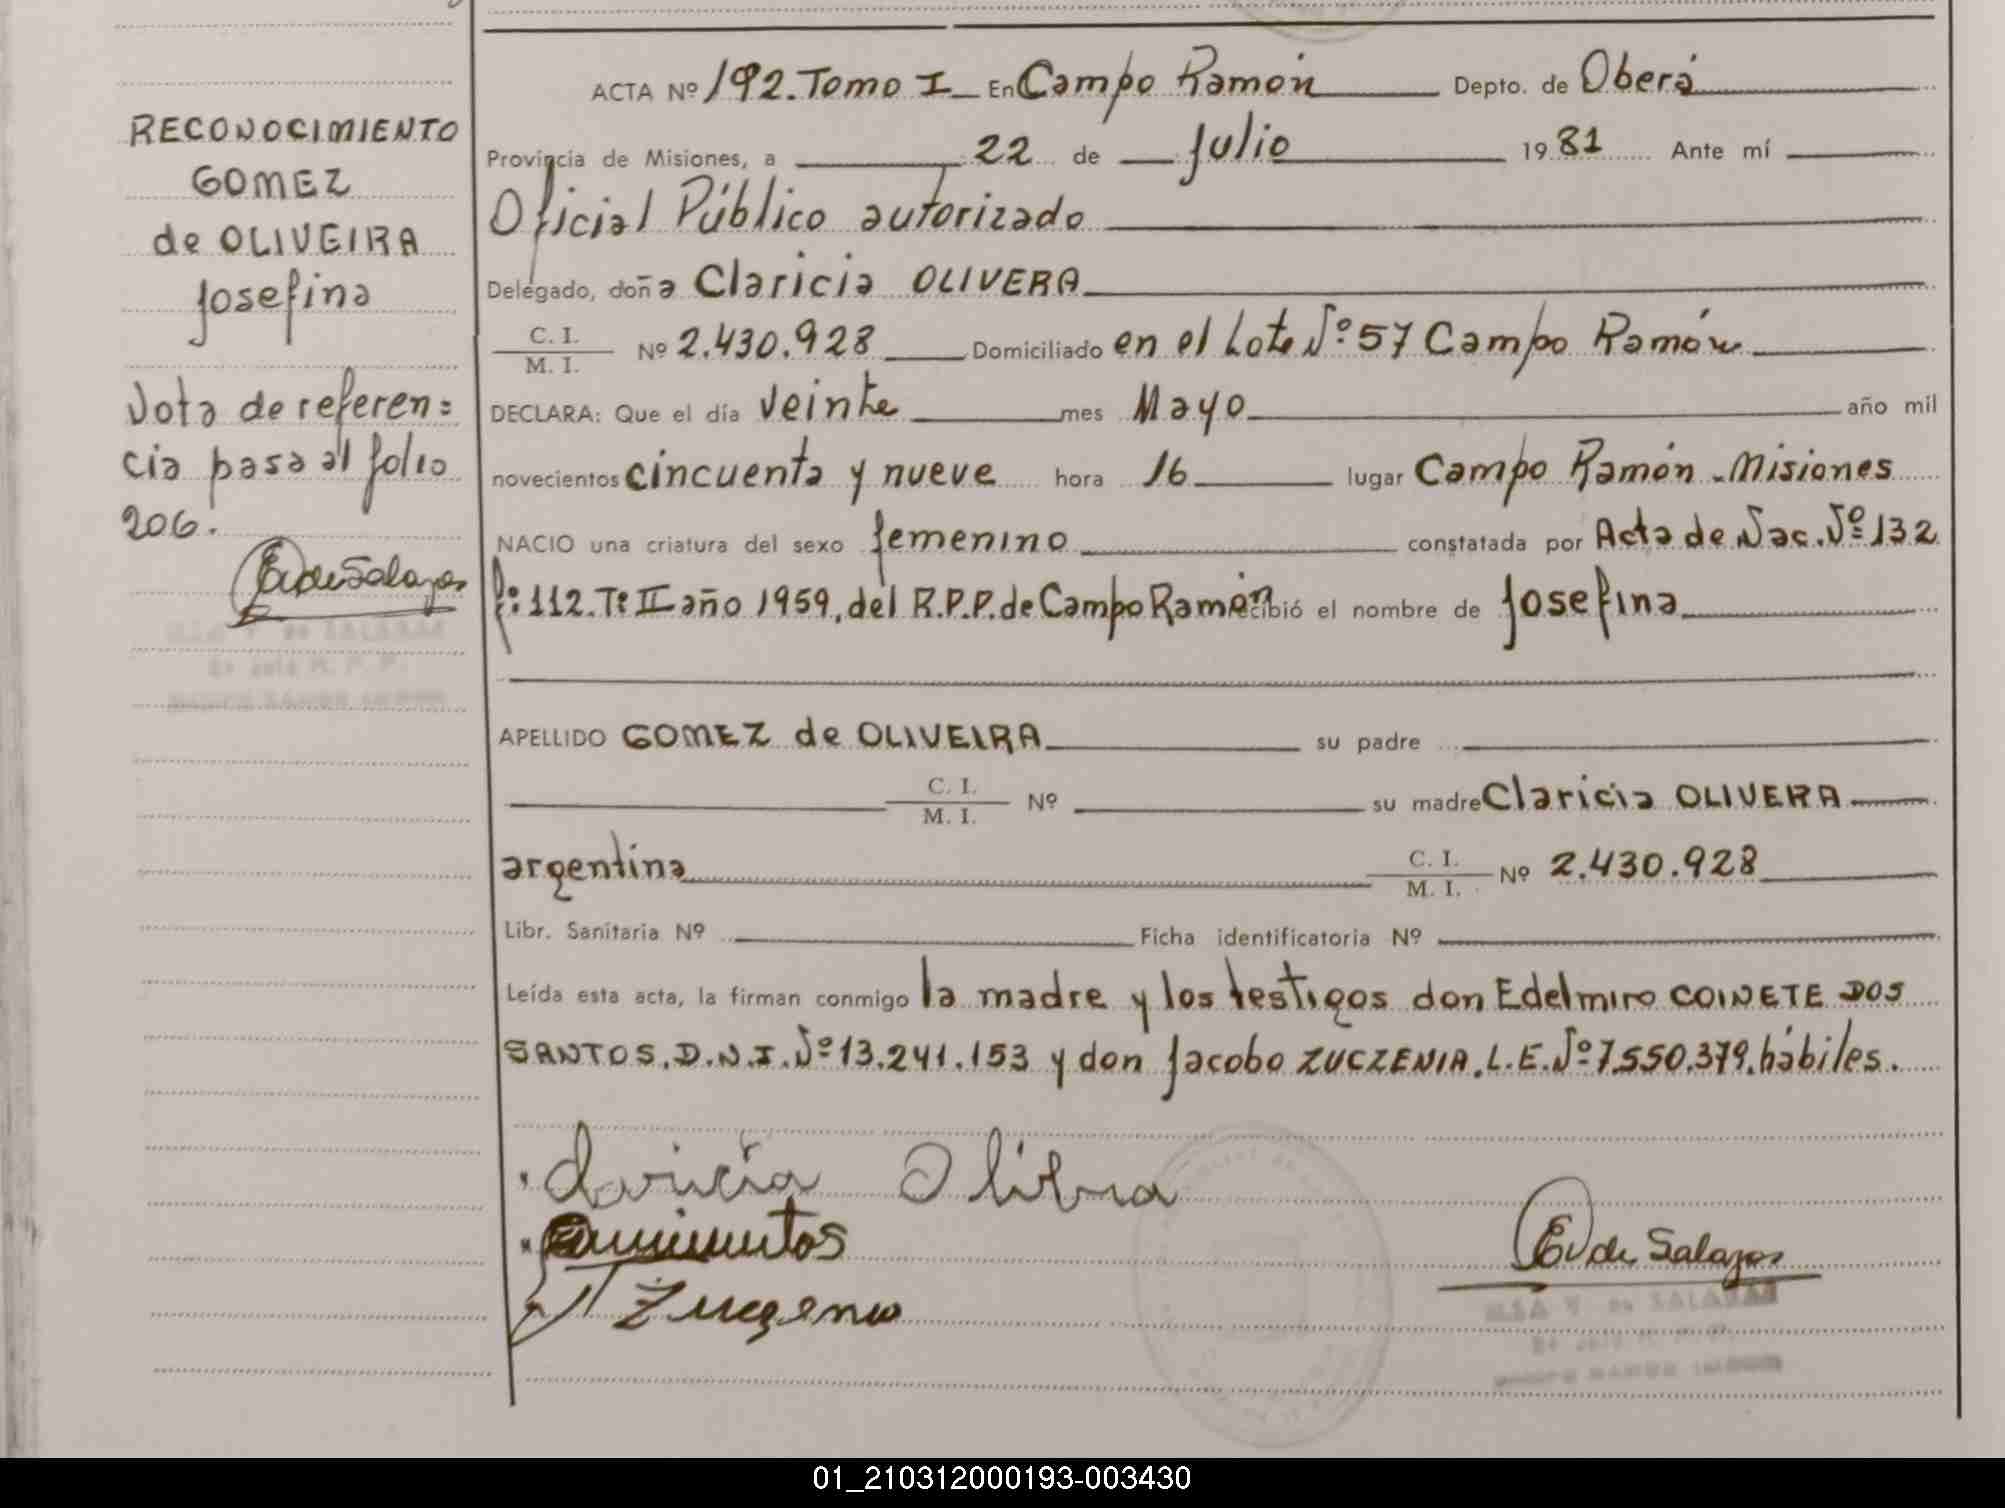 RECONOCIMIENTO
GOMEZ
de OLIVEIRA
Josefina
Nota de referen=
cia pasa al folio
206.
EvdeSalazar
ACTA Nº 192. Tomo I En Campo Ramón Depto. de Oberá
Provincia de Misiones, a 22 de Julio 1981 Ante mí
Oficial Público autorizado
Delegado, doña Claricia OLIVERA
C. I.
M. I.
Nº 2.430.928 Domiciliado en el Lote Nº 57 Campo Ramón
DECLARA: Que el día veinte mes Mayo año mil
novecientos cincuenta y nueve hora 16 lugar Campo Ramón - Misiones
NACIO una criatura del sexo femenino constatada por Acta de Nac. Nº 132
fº: 112. Tº II año 1959, del R.P.P. de Campo Ramón recibió el nombre de Josefina
APELLIDO GOMEZ de OLIVEIRA su padre
C. I.
M. I.
Nº su madre Claricia OLIVERA
argentina
C. I.
M. I.
Nº 2.430.928
Libr. Sanitaria Nº Ficha identificatoria Nº
Leída esta acta, la firman conmigo la madre y los testigos don Edelmiro COINETE DOS
SANTOS, D.N.I. Nº 13.241.153 y don Jacobo ZUCZENIA, L.E. Nº 7.550.379, hábiles.
Claricia Olivera
Ev de Salazar
de SALAZAR
01_210312000193-003430